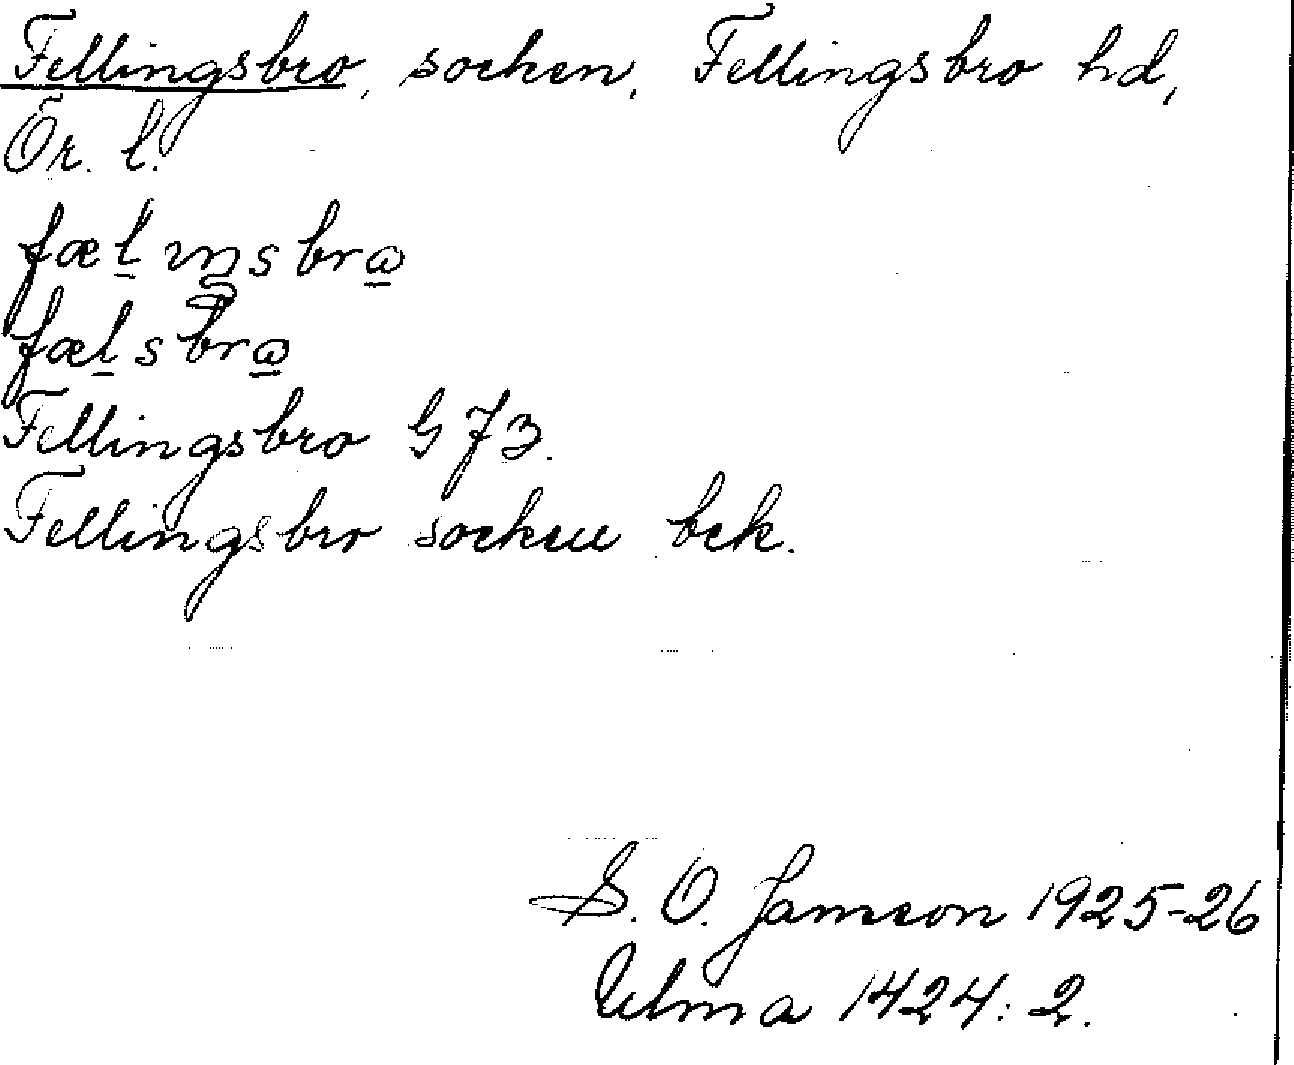 Fellingsbro, socken, Fellingsbro hd,
Ör. l.
fæl̲ıŋsbrω̲
fæl̲sbrω̲
Fellingsbro G 73.
Fellingsbro socken bek.
S. O. Jamson 1925-26
Ulma 1424: 2.